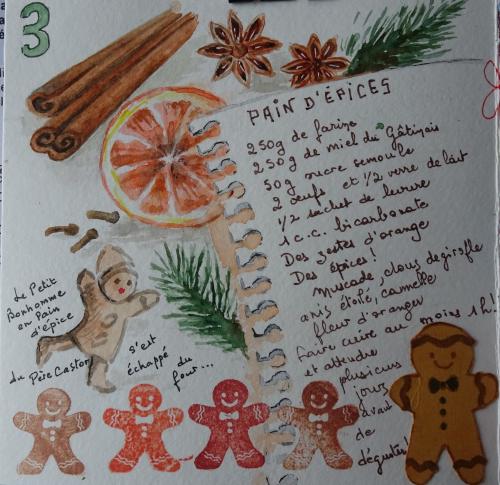 3
PAIN D'ÉPICES
250g de farine
250g de miel du Gâtinais
50g sucre semoule
2 œufs et 1/2 verre de lait
1/2 sachet de levure
1 c.c. bicarbonate
Des zestes d'orange
Des épices !
muscade, clous de girofle
anis étoilé, cannelle
fleur d'oranger
faire cuire au moins 1h !
et attendre
plusieurs
jours
avant
de
déguster!
Le Petit
Bonhomme
en Pain
d'épice
du Père Castor
s'est
échappé
du
four...